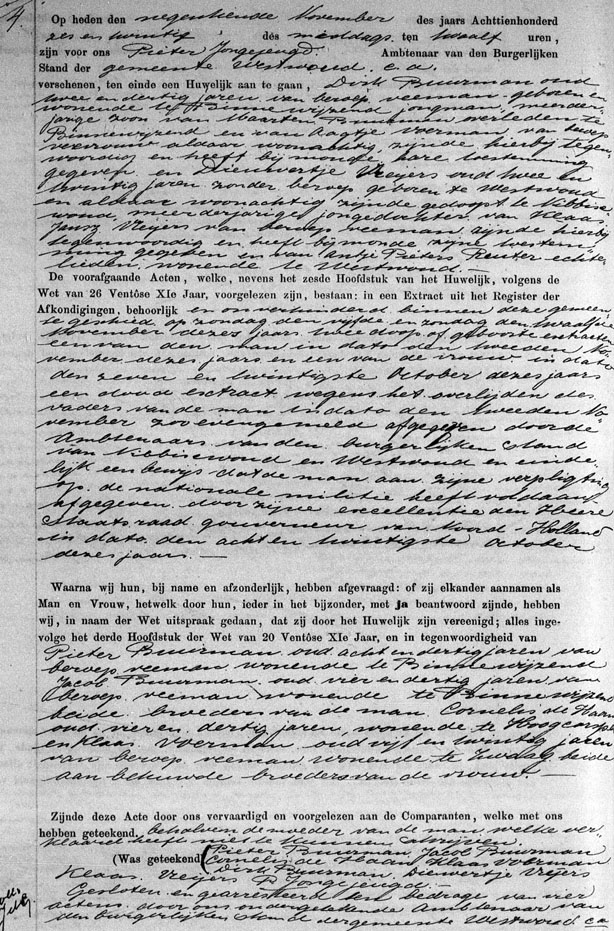 4.
Op heden den negentiende November des jaars Achttienhonderd
zes en twintig des middags ten twaalf uren,
zijn voor ons Pieter Jongejeugd Ambtenaar van den Burgerlijken
Stand der gemeente Westwoud c.a.
verschenen, ten einde een Huwelijk aan te gaan, Dirk Buurman oud
twee en dertig jaren van beroep veeman geboren en
wonende te Binnewijzend jongman, meerder-
jarige zoon van Maarten Buurman overleden te
Binnewijzend en van Aagtje Voerman, van beroep
veevrouw aldaar woonachtig, zijnde hierbij tegen-
woordig en heeft bij monde hare toestemming
gegeven en Dieuwertje Vreijers oud twee en
twintig jaren zonder beroep geboren te Westwoud
en aldaar woonachtig zijnde gedoopt te Nibbixe-
woud, meerderjarige jongedochter van Klaas
Jansz Vreijers van beroep veeman zijnde hierbij
tegenwoordig en heeft bij monde zijne toestem-
ming gegeven en van Antje Pieters Reuter echte-
lieden, wonende te Westwoud.—
De voorafgaande Acten, welke, nevens het zesde Hoofdstuk van het Huwelijk, volgens de
Wet van 26 Ventôse XIe Jaar, voorgelezen zijn, bestaan: in een Extract uit het Register der
Afkondigingen, behoorlijk en onverhinderd binnen deze gemeen-
te geschied op zondag den vijfde en zondag den twaalfde
November dezes jaars twee doop of geboorte extracten
een van den man in dato den tweeden No-
vember dezes jaars en een van de vrouw in dato
den zeven en twintigste October dezes jaars
een dood extract wegens het overlijden des
vaders van de man in dato den tweeden No-
vember zoo evengemeld afgegeven door de
Ambtenaars van den burgerlijken stand
van Nibbixewoud en Westwoud en einde-
lijk een bewijs dat de man aan zijne verpligting
op de nationale militie heeft voldaan
afgegeven door zijne excellentie den Heere
Staatsraad gouverneur van Noord-Holland
in dato den acht en twintigste October
dezes jaars.—
Waarna wij hun, bij name en afzonderlijk, hebben afgevraagd: of zij elkander aannamen als
Man en Vrouw, hetwelk door hun, ieder in het bijzonder, met ja beantwoord zijnde, hebben
wij, in naam der Wet uitspraak gedaan, dat zij door het Huwelijk zijn vereenigd; alles inge-
volge het derde Hoofdstuk der Wet van 20 Ventôse XIe Jaar, en in tegenwoordigheid van
Pieter Buurman oud acht en dertig jaren van
beroep veeman wonende te Binnewijzend
Jacob Buurman oud vier en dertig jaren van
beroep veeman wonende te Binnewijzend
beide broeders van de man Cornelis de Haan
oud vier en dertig jaren, wonende te Hoogcarspel
en Klaas Voerman oud vijf en twintig jaren
van beroep veeman wonende te Zwaag beide
aan behuwde broeders van de vrouw.—
Zijnde deze Acte door ons vervaardigd en voorgelezen aan de Comparanten, welke met ons
hebben geteekend. behalven de moeder van de man welke ver-
klaard heeft niet te kunnen schrijven.
(Was geteekend) Pieter Buurman Jacob Buurman
Cornelis de Haan Klaas Voerman
Dirk Buurman Diewertje Vreijers
Klaas Vreijers P. Jongejeugd.—
Gesloten en gearresteerd ten bedrage van vier
actens door ons ondergeteekende Ambtenaar van
den burgerlijken stand der gemeente Westwoud c.a.